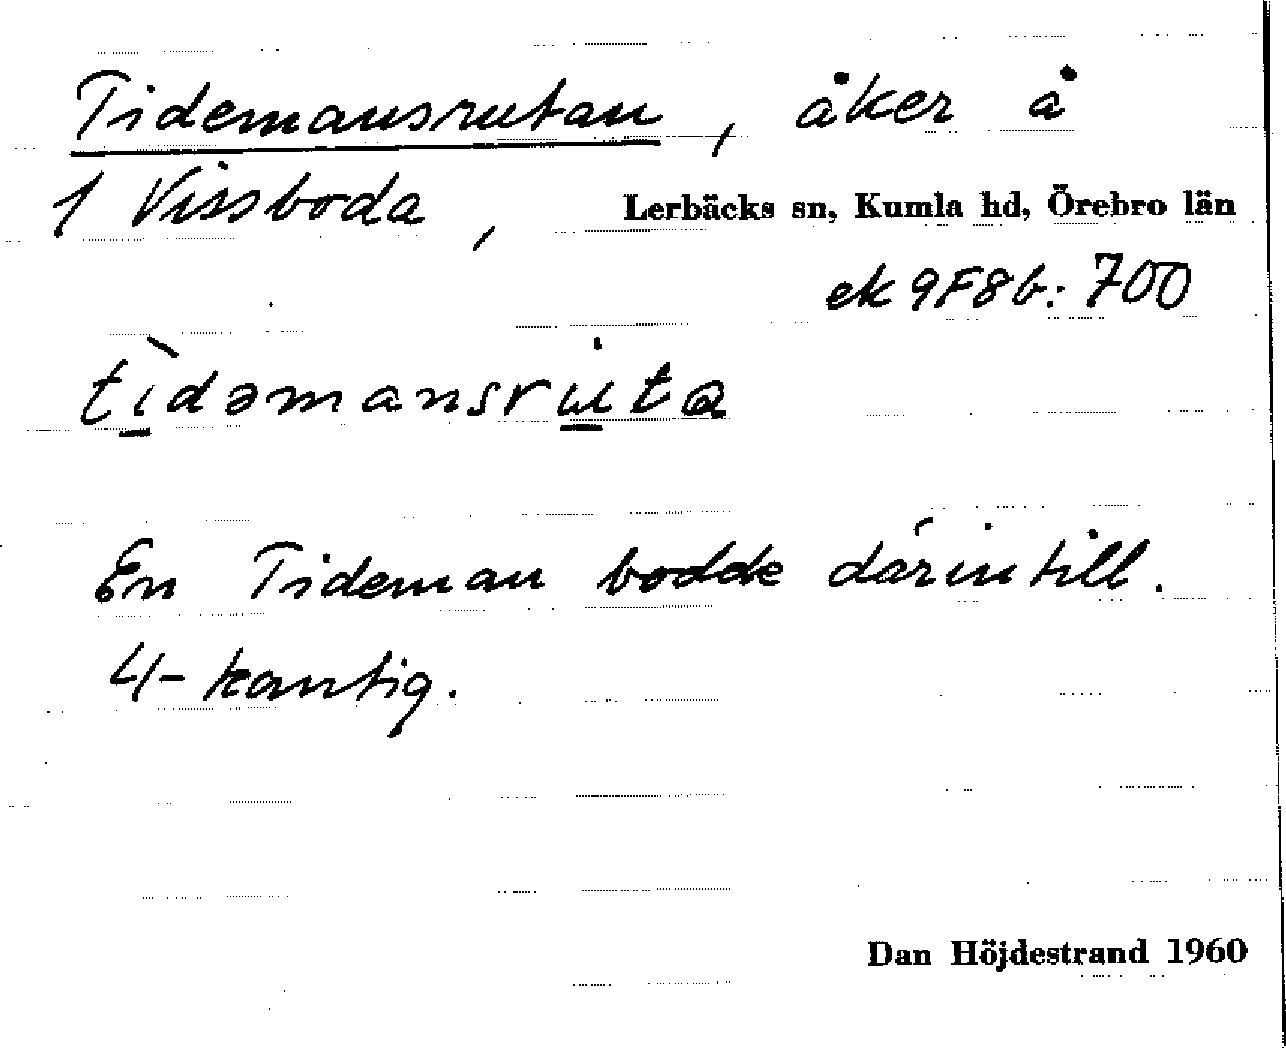 Tidemansrutan, åker å
1 Vissboda, Lerbäcks sn, Kumla hd, Örebro län
ek 9F8b: 700
tìdəmansru̇ta
En Tideman bodde därintill.
4-kantig.
Dan Höjdestrand 1960